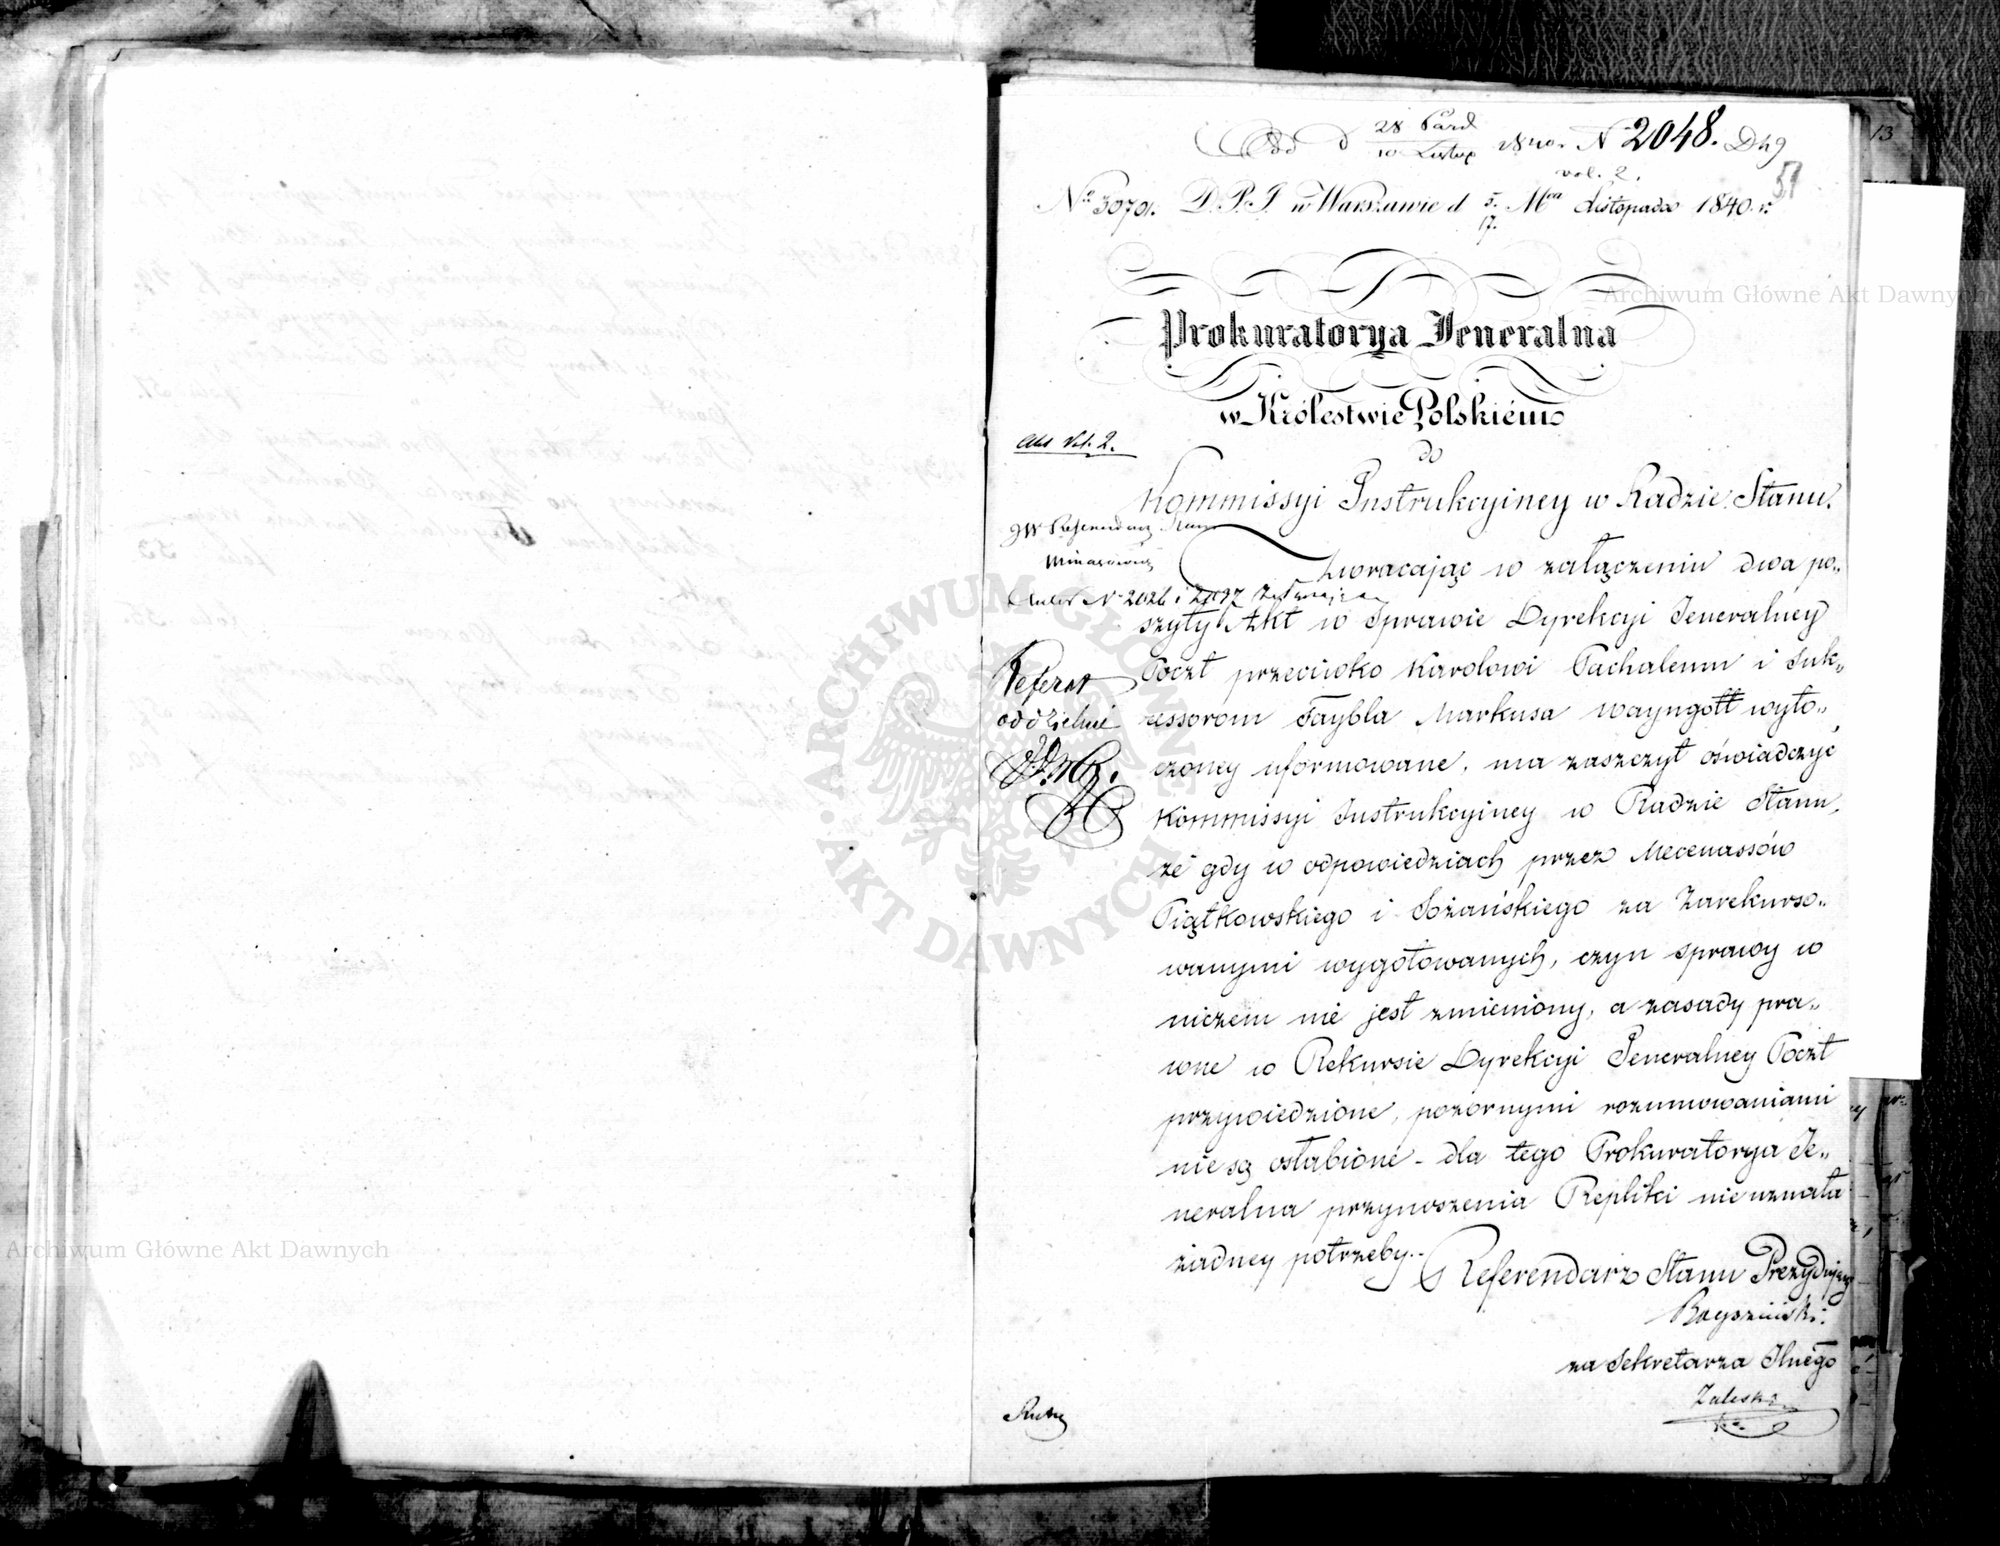 Od d 28 Paźd / 10 Listop 1840. N 2048. D49
vol. 2.
57
No 3070. D.P.J. w Warszawie d 5/17. Mca Listopada 1840. r.
Prokuratorya Jeneralna
w Królestwie Polskiém
do
Akt Vol. 2.
Kommissyi Instrukcyiney w Radzie Stanu.
JW Referendarz Stanu
Minasowicz
Zwracając w załączeniu dwa po„
Numer N 2026 i
szyty Akt w Sprawie Dyrekcyi Jeneralney
Poczt przeciwko Karolowi Pachalemu i Suk„
cessorom Faybla Markusa Wayngott wyto„
czoney uformowane, ma zaszczyt oświadczyć
Kommissyi Instrukcyiney w Radzie Stanu,
że gdy w odpowiedziach przez Mecenassów
Piątkowskiego i Łożańskiego za Zarekurso„
wanymi wygotowanych, czyn sprawy w
niczem nie jest zmieniony, a zasady pra„
wne w Rekursie Dyrekcyi Jeneralney Poczt
przywiedzione, pozornymi rozumowaniami
nie są osłabione - dla tego Prokuratorya Je„
neralna przynoszenia Repliki nie uznała
żadney potrzeby.
Referat
oddzielnie
Referendarz Stanu Prezydujący
za Sekretarza Jlnego
Zaleski
Archiwum Główne Akt Dawnych
Archiwum Główne Akt Dawnych
ARCHIWUM GŁÓWNE
AKT DAWNYCH